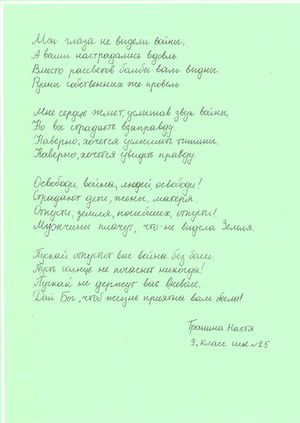 Мои глаза не видели войны,
А ваши настрадались вдоволь.
Вместо рассветов бомбы вам видны.
Руины собственных же кровель.
Мне сердце жмёт, услышав звук войны,
Но вы страдаете взаправду
Наверно, хочется услышать тишины,
Наверно, хочется увидеть правду.
Освободи, война, людей, освободи!
Страдают дети, жёны, матеря...
Отпусти, земля, погибших, отпусти!
Мужчины плачут, что не видела Земля.
Пускай отпустит вас война без боли.
Пусть солнце не погаснет никогда!
Пускай не держут вас в неволе.
Дай Бог, чтоб жизнь приятна вам была!
Трошина Настя
9 класс шк №25